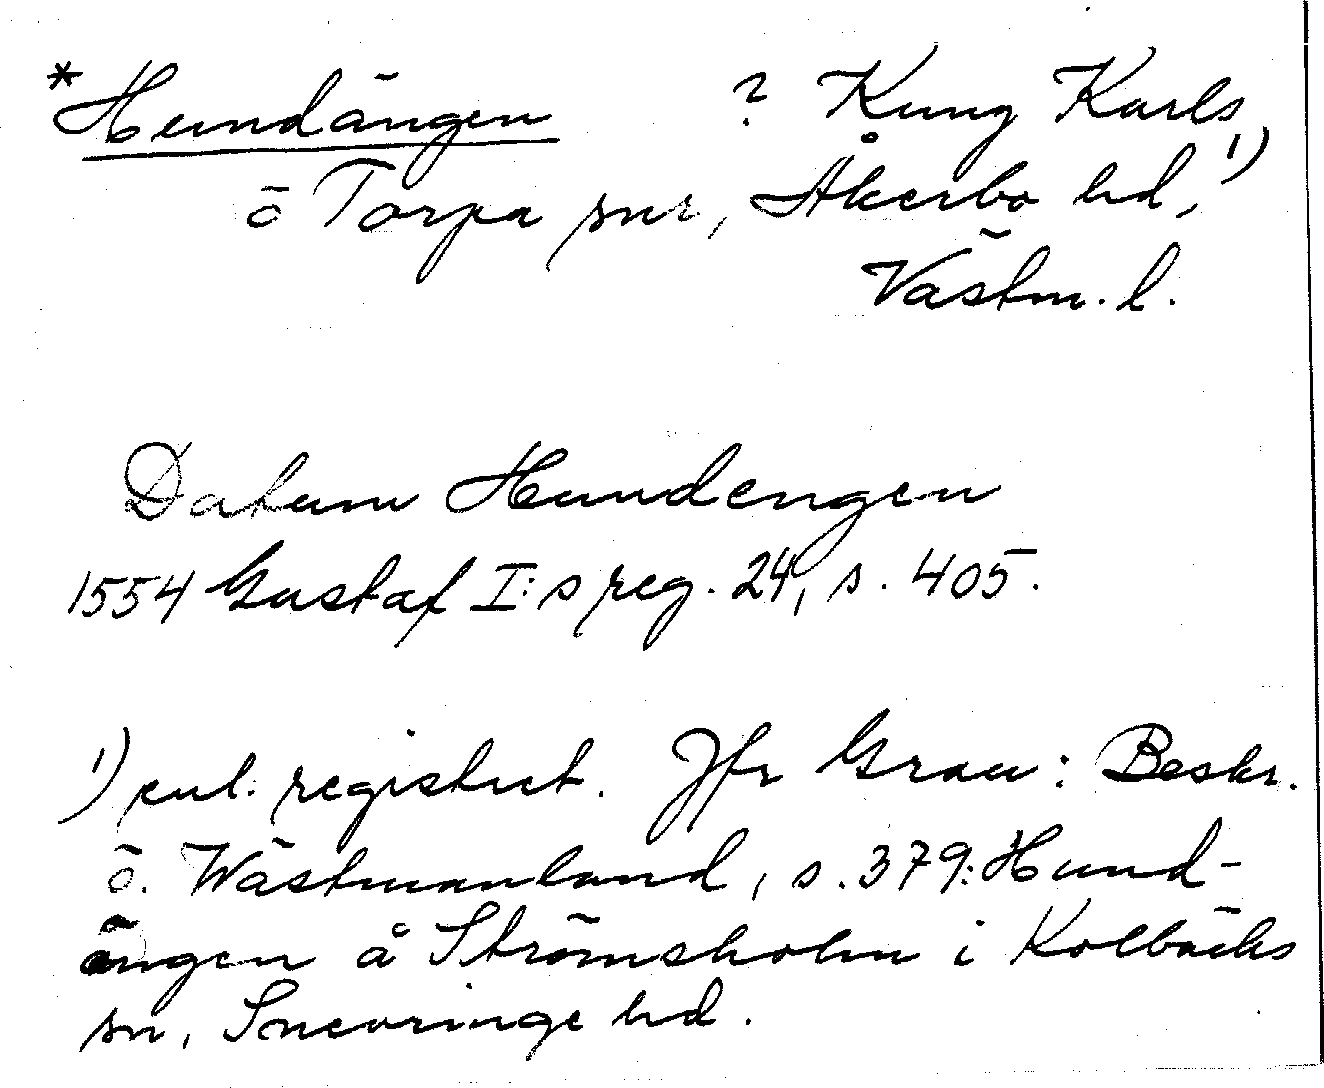 *Hundängen ? Kung Karls
ö Torpa snr, Åkerbo hd,¹)
Västm. l.
Datum Hundengen
1554 Gustaf I:s reg. 24, s. 405.
¹) enl. registret. Jfr Grau: Beskr.
ö. Wästmanland, s. 379: Hund-
ängen å Strömsholm i Kolbäcks
sn, Snevringe hd.